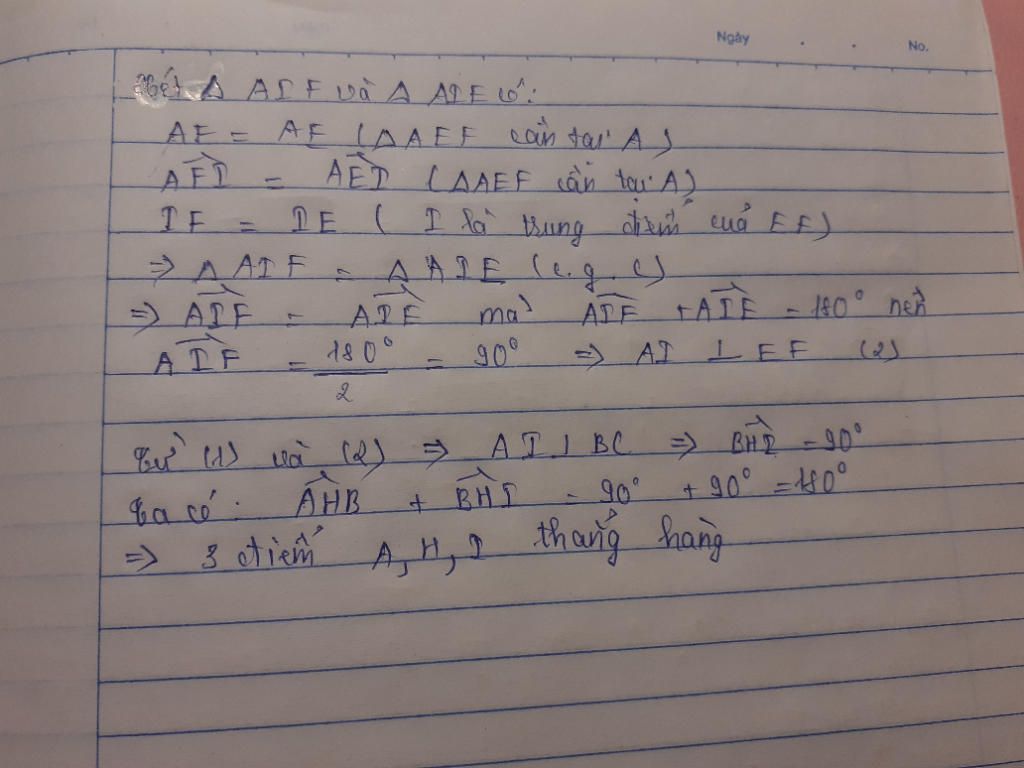 Ngày . . No.
Xét Δ AIF và Δ AIE có:
AF = AE (ΔAEF cân tại A)
\widehat{AFI} = \widehat{AEI} (ΔAEF cân tại A)
IF = IE ( I là trung điểm của EF)
=> Δ AIF = Δ AIE (c.g.c)
=> \widehat{AIF} = \widehat{AIE} mà \widehat{AIF} + \widehat{AIE} = 180° nên
\widehat{AIF} = \frac{180°}{2} = 90° => AI ⊥ EF (2)
Từ (1) và (2) => AI ⊥ BC => \widehat{BHI} = 90°
Ta có: \widehat{AHB} + \widehat{BHI} = 90° + 90° = 180°
=> 3 điểm A, H, I thẳng hàng